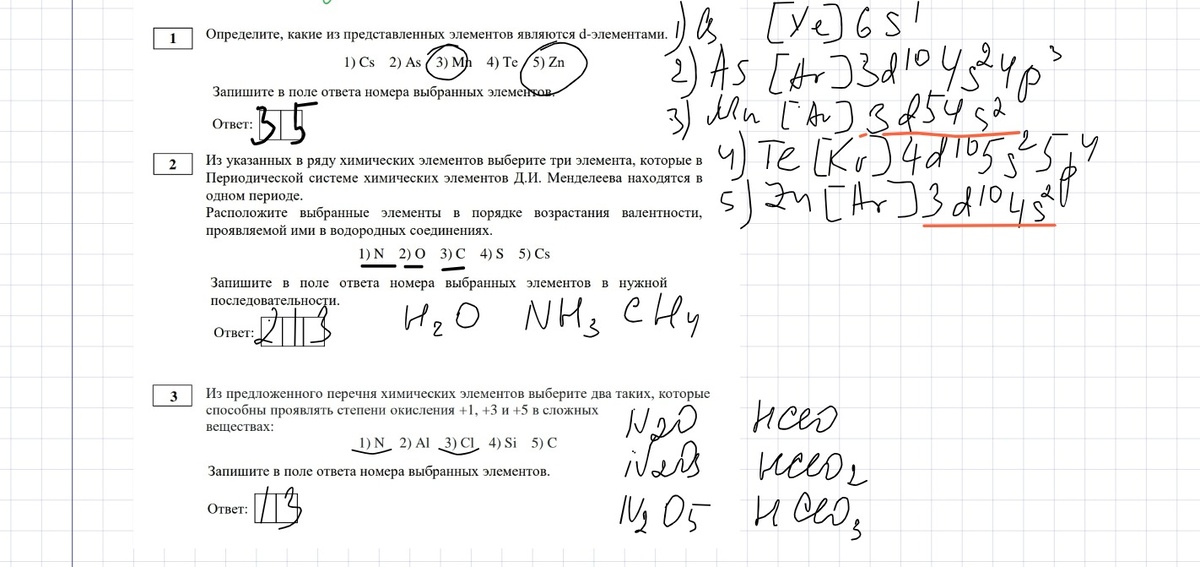 1
Определите, какие из представленных элементов являются d-элементами.
1) Cs 2) As 3) Mn 4) Te 5) Zn
Запишите в поле ответа номера выбранных элементов.
Ответ: 35
1) Cs [Xe] 6s¹
2) As [Ar] 3d¹⁰ 4s² 4p³
3) Mn [Ar] 3d5 4s²
4) Te [Kr] 4d¹⁰ 5s² 5p⁴
5) Zn [Ar] 3d¹⁰ 4s²
2
Из указанных в ряду химических элементов выберите три элемента, которые в
Периодической системе химических элементов Д.И. Менделеева находятся в
одном периоде.
Расположите выбранные элементы в порядке возрастания валентности,
проявляемой ими в водородных соединениях.
1) N 2) O 3) C 4) S 5) Cs
Запишите в поле ответа номера выбранных элементов в нужной
последовательности.
Ответ: 213
H₂O NH₃ CH₄
3
Из предложенного перечня химических элементов выберите два таких, которые
способны проявлять степени окисления +1, +3 и +5 в сложных
веществах:
1) N 2) Al 3) Cl 4) Si 5) C
Запишите в поле ответа номера выбранных элементов.
Ответ: 13
N2O HClO
N2O3 HClO₂
N₂O5 HClO₃